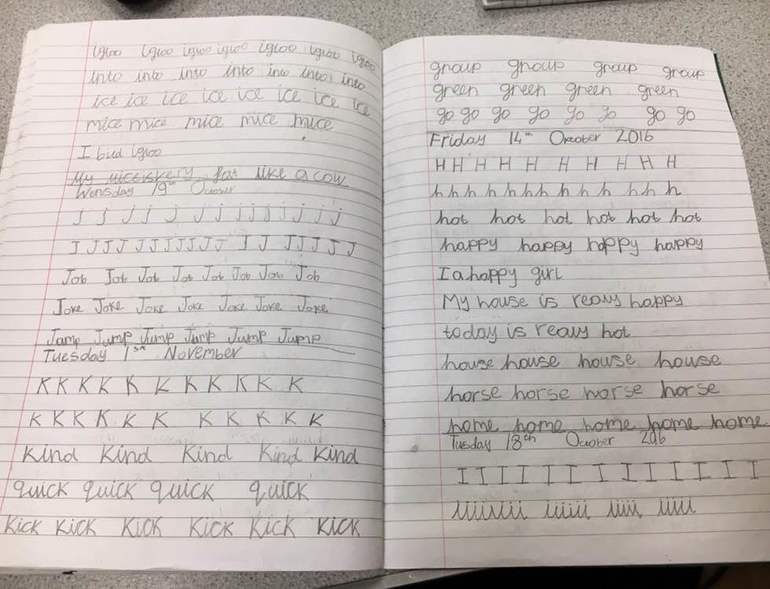 igloo igloo igloo igloo igloo igloo igloo
into into into into into into into
ice ice ice ice ice ice ice ice
mice mice mice mice mice
I biud igloo
My for like a cow
Wensday 19th October
j j j j j j j j j j j j j j
J J J J J J J J J J J J J J J J J
Job Job Job Job Job Job Job Job
Joke Joke Joke Joke Joke Joke Joke
Jamp Jump Jump Jump Jump Jump
Tuesday 1st November
K K K K K K K K K K K
K K K K K K K K K K K
Kind Kind Kind Kind Kind
quick quick quick quick
Kick Kick Kick Kick Kick Kick
group group group group
green green green green
go go go go go go go go
Friday 14th October 2016
H H H H H H H H H H
h h h h h h h h h h h h h
hot hot hot hot hot hot
happy happy happy happy
I a happy girl
My house is really happy
today is really hot
house house house house
horse horse horse horse
home home home home home
Tuesday 18th October 2016
I I I I I I I I I I I I I
iiiiiii iiiii iiii iiii